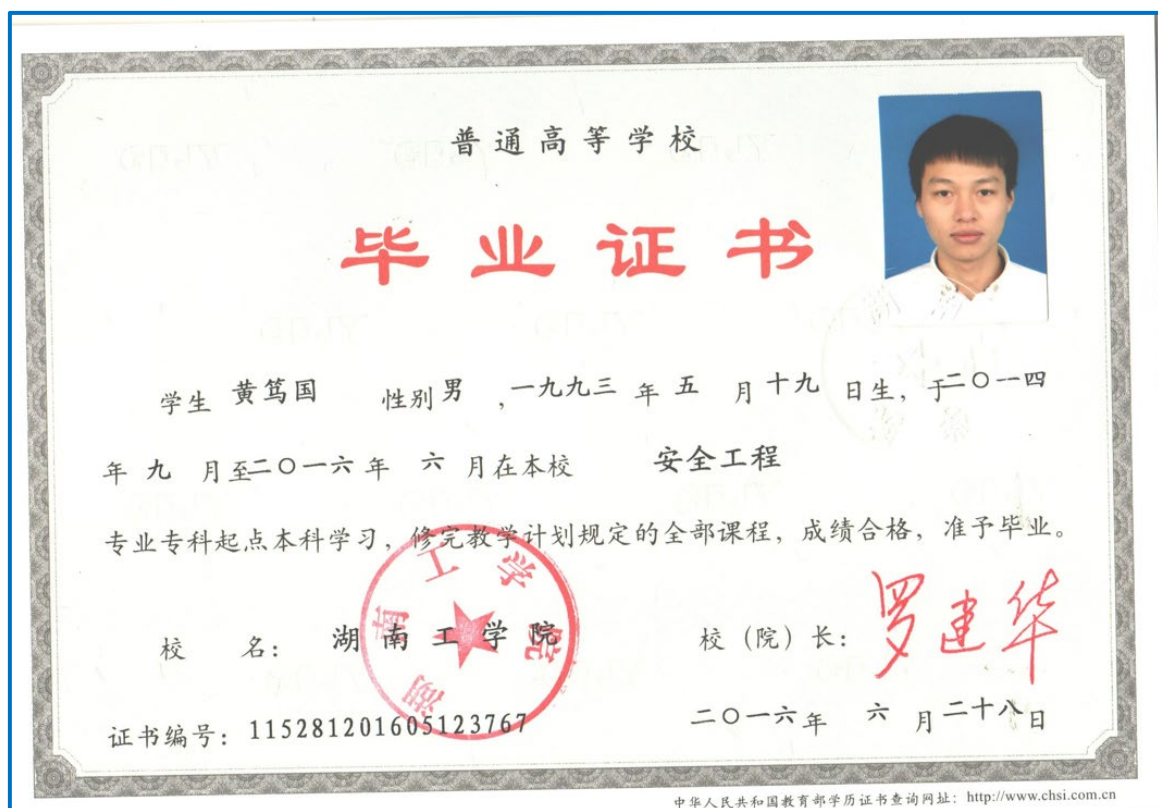 普通高等学校
毕业证书
学生 黄笃国 性别 男 ,一九九三 年 五 月 十九 日生, 于二〇一四
年 九 月至二〇一六年 六 月在本校 安全工程
专业专科起点本科学习, 修完教学计划规定的全部课程, 成绩合格, 准予毕业。
校 名: 湖南工学院
校(院)长: 罗建华
湖南工学院
证书编号: 115281201605123767
二〇一六年 六 月二十八日
中华人民共和国教育部学历证书查询网址: http://www.chsi.com.cn